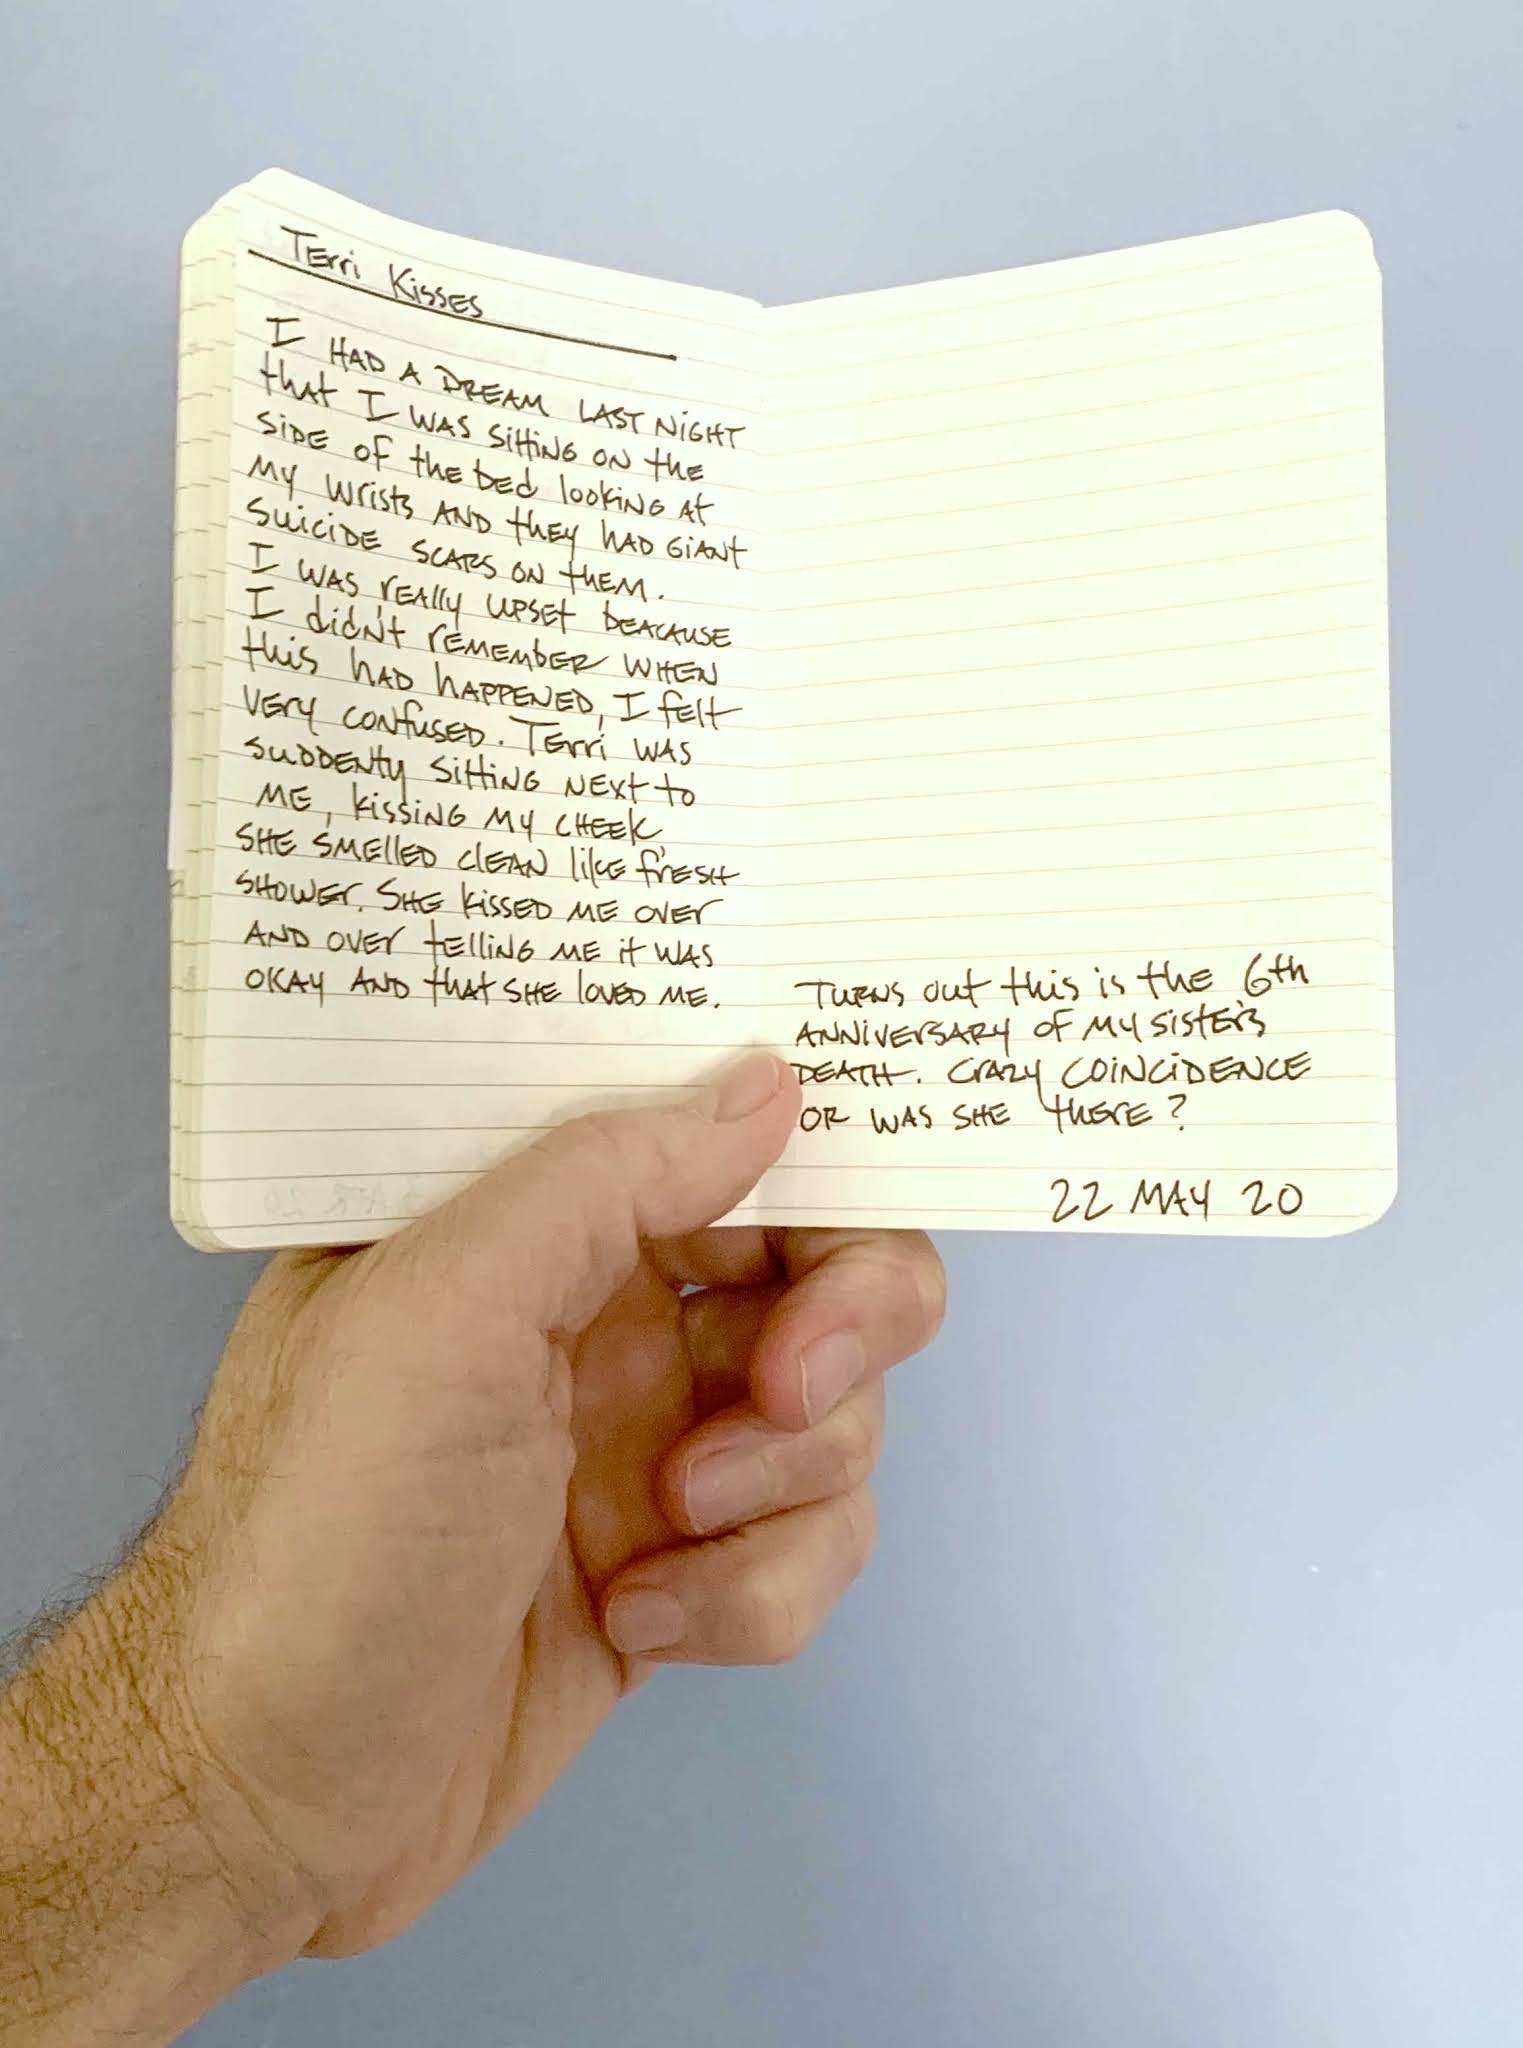 TErri KissEs
I HAD A DREAM LAST NiGHT
that I WAS sittiNG ON the
SiDE of the bed lookiNG At
My Wrists AND thEy hAD GiANt
SuiciDE SCARS ON thEM.
I WAS rEAlly UPSEt bEACAUSE
I didn't rEMEMbER WHEN
this hAD hAPPENED, I fElt
VEry CONfuSED. TErri WAS
SuDDENty SittiNG NExt to
ME, kissiNG My CHEEk,
SHE SMEllED clEAN likE frESH
SHOWEr. SHE kissED ME OVEr
AND OVEr tElliNG ME it WAS
OKAy AND that SHE lOVED ME.
TURNS out this is the 6th
ANNiVERSARy OF My SiStEr's
DEATH. CrAZy COiNCiDENCE
OR WAS SHE thErE?
22 MAy 20